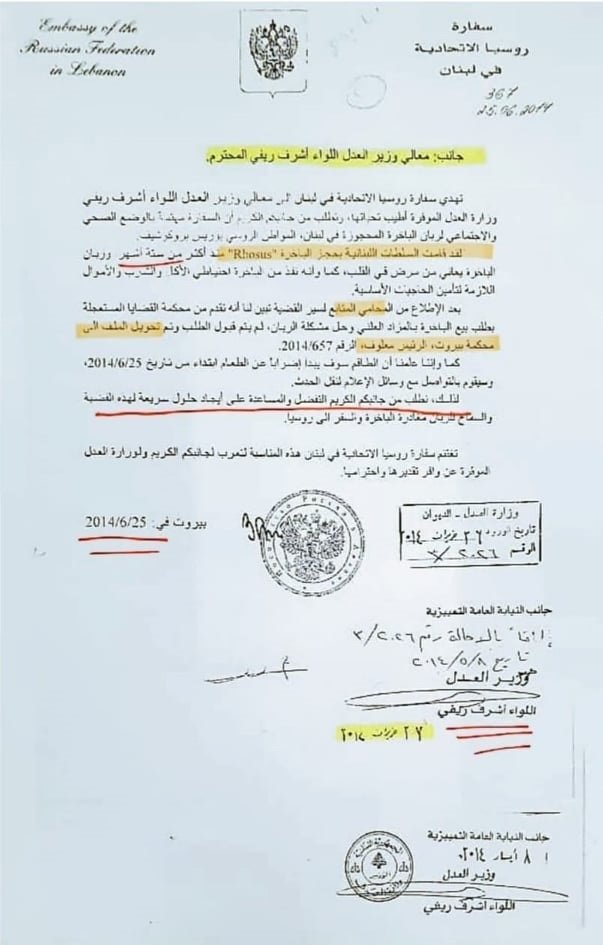 Embassy of the
Russian Federation
in Lebanon
سفارة
روسيا الاتحادية
في لبنان
367
25.06.2014
جانب: معالي وزير العدل اللواء أشرف ريفي المحترم.
تهدي سفارة روسيا الاتحادية في لبنان الى معالي وزير العدل اللواء أشرف ريفي
وزارة العدل الموقرة أطيب تحياتها، وتطلب من جانبكم الكريم أن السفارة مهتمة بالوضع الصحي
والاجتماعي لربان الباخرة المحجوزة في لبنان، المواطن الروسي بوريس بروكوشيف.
لقد قامت السلطات اللبنانية بحجز الباخرة "Rhosus" منذ أكثر من ستة أشهر وربان
الباخرة يعاني من مرض في القلب، كما وأنه نفذ من الباخرة احتياطي الأكل والشرب والأموال
اللازمة لتأمين الحاجيات الأساسية.
بعد الإطلاع من المحامي المتابع لسير القضية تبين لنا أنه تقدم من محكمة القضايا المستعجلة
بطلب بيع الباخرة بالمزاد العلني وحل مشكلة الربان، لم يتم قبول الطلب وتم تحويل الملف الى
محكمة بيروت، الرئيس معلوف، الرقم 2014/657.
كما وإننا علمنا أن الطاقم سوف يبدأ إضراباً عن الطعام ابتداء من تاريخ 2014/6/25،
وسيقوم بالتواصل مع وسائل الإعلام لنقل الحدث.
لذلك، نطلب من جانبكم الكريم التفضل والمساعدة على أيجاد حلول سريعة لهذه القضية
والسماح للربان مغادرة الباخرة والسفر الى روسيا.
تغتنم سفارة روسيا الاتحادية في لبنان هذه المناسبة لتعرب لجانبكم الكريم ولوزارة العدل
الموقرة عن وافر تقديرها واحترامها.
بيروت في: 2014/6/25
وزارة العدل - الديوان
تاريخ الورود ٢٦ حزيران ٢٠١٤
الرقم ٣/٢٠٢٦
جانب النيابة العامة التمييزية
إلحاقاً بالاحالة رقم ٣/٢٠٢٦
تاريخ ٢٠١٤/٥/٨
وزير العدل
اللواء أشرف ريفي
٢٧ حزيران ٢٠١٤
جانب النيابة العامة التمييزية
٨ أيار ٢٠١٤
وزير العدل
اللواء أشرف ريفي